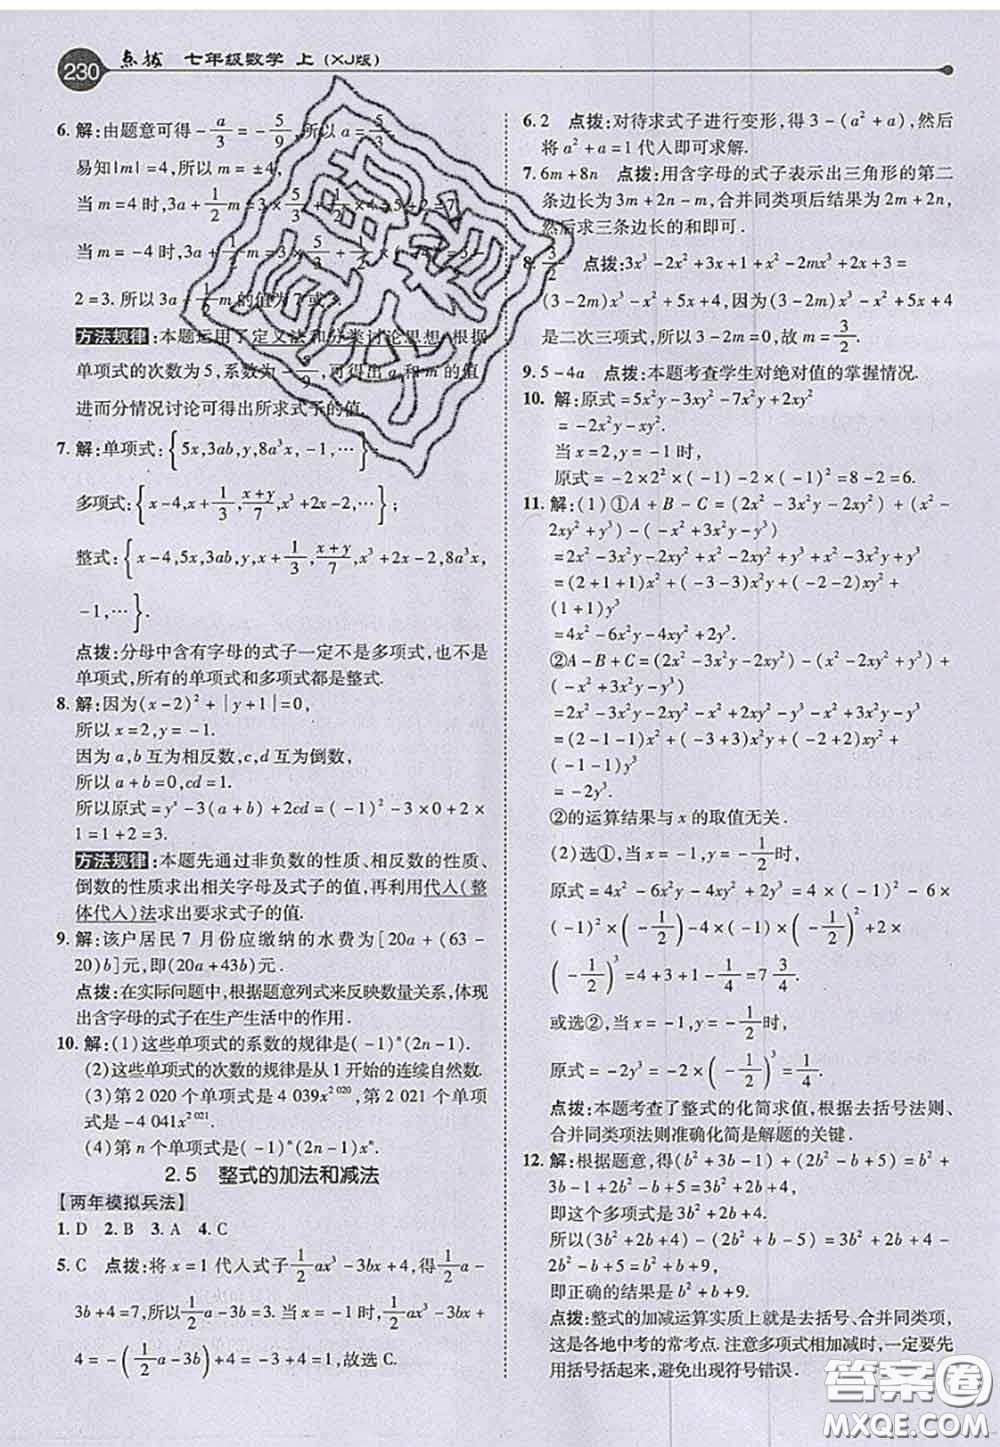 230 点拨 七年级数学 上(XJ版)
6. 解:由题意可得 -a/3 = -5/9,所以 a = 5/3.
易知|m| = 4,所以 m = ±4.
当 m = 4 时,3a + 1/2 m = 3 × 5/3 + 1/2 × 4 = 5 + 2 = 7;
当 m = -4 时,3a + 1/2 m = 3 × 5/3 +
2 = 3. 所以 3a + 1/2 m 的值为 7 或 3.
方法规律:本题运用了定义法和分类讨论思想. 根据
单项式的次数为 5,系数为 -5/9,可得出 a 和 m 的值,
进而分情况讨论可得出所求式子的值.
7. 解:单项式:{5x,3ab,y,8a³,-1,…};
多项式:{x-4,x+1/3,(x+y)/7,x³+2x-2,…};
整式:{x-4,5x,3ab,y,x+1/3,(x+y)/7,x³+2x-2,8a³,
-1,…}.
点拨:分母中含有字母的式子一定不是多项式,也不是
单项式,所有的单项式和多项式都是整式.
8. 解:因为(x-2)²+|y+1|=0,
所以 x=2,y=-1.
因为 a,b 互为相反数,c,d 互为倒数,
所以 a+b=0,cd=1.
所以原式=yˣ-3(a+b)+2cd=(-1)²-3×0+2×
1=1+2=3.
方法规律:本题先通过非负数的性质、相反数的性质、
倒数的性质求出相关字母及式子的值,再利用代入(整
体代入)法求出要求式子的值.
9. 解:该户居民 7 月份应缴纳的水费为[20a+(63-
20)b]元,即(20a+43b)元.
点拨:在实际问题中,根据题意列式来反映数量关系,体现
出含字母的式子在生产生活中的作用.
10. 解:(1)这些单项式的系数的规律是(-1)ⁿ(2n-1).
(2)这些单项式的次数的规律是从 1 开始的连续自然数.
(3)第 2 020 个单项式是 4 039x^2 020,第 2 021 个单项
式是-4 041x^2 021.
(4)第 n 个单项式是(-1)ⁿ(2n-1)xⁿ.
2.5 整式的加法和减法
【两年模拟兵法】
1. D 2. B 3. A 4. C
5. C 点拨:将 x=1 代入式子 1/2 ax³-3bx+4 得 1/2 a-
3b+4=7,所以 1/2 a-3b=3. 当 x=-1 时,1/2 ax³-3bx+
4=-(1/2 a-3b)+4=-3+4=1,故选 C.
6. 2 点拨:对待求式子进行变形,得 3-(a²+a),然后
将 a²+a=1 代入即可求解.
7. 6m+8n 点拨:用含字母的式子表示出三角形的第二
条边长为 3m+2n-m,合并同类项后结果为 2m+2n,
然后求三条边长的和即可.
8. 3/2 点拨:3x³-2x²+3x+1+x²-2mx³+2x+3=
(3-2m)x³-x²+5x+4,因为(3-2m)x³-x²+5x+4
是二次三项式,所以 3-2m=0,故 m=3/2.
9. 5-4a 点拨:本题考查学生对绝对值的掌握情况.
10. 解:原式=5x²y-3xy²-7x²y+2xy²
=-2x²y-xy².
当 x=2,y=-1 时,
原式=-2×2²×(-1)-2×(-1)²=8-2=6.
11. 解:(1)①A+B-C=(2x²-3x²y-2xy²)+(x²-
2xy²+y³)-(-x²+3x²y-y³)
=2x²-3x²y-2xy²+x²-2xy²+y³+x²-3x²y+y³
=(2+1+1)x²+(-3-3)x²y+(-2-2)xy²+
(1+1)y³
=4x²-6x²y-4xy²+2y³.
②A-B+C=(2x²-3x²y-2xy²)-(x²-2xy²+
y³)+(-x²+3x²y-y³)
=2x²-3x²y-2xy²-x²+2xy²-y³-x²+3x²y-y³
=(2-1-1)x²+(-3+3)x²y+(-2+2)xy²+
(-1-1)y³
=-2y³.
②的运算结果与 x 的取值无关.
(2)选①,当 x=-1,y=-1/2 时,
原式=4x²-6x²y-4xy²+2y³=4×(-1)²-6×
(-1)²×(-1/2)-4×(-1)×(-1/2)²+2×
(-1/2)³=4+3+1-1/4=7 3/4.
或选②,当 x=-1,y=-1/2 时,
原式=-2y³=-2×(-1/2)³=1/4.
点拨:本题考查了整式的化简求值,根据去括号法则、
合并同类项法则准确化简是解题的关键.
12. 解:根据题意,得(b²+3b-1)+(2b²-b+5)=b²+
3b-1+2b²-b+5=3b²+2b+4,
即这个多项式是 3b²+2b+4.
所以(3b²+2b+4)-(2b²+b-5)=3b²+2b+4-
2b²-b+5=b²+b+9,
即正确的结果是 b²+b+9.
点拨:整式的加减运算实质上就是去括号、合并同类项,
这是各地中考的常考点. 注意多项式相加减时,一定要先
用括号括起来,避免出现符号错误.
答案圈
MXQE.COM